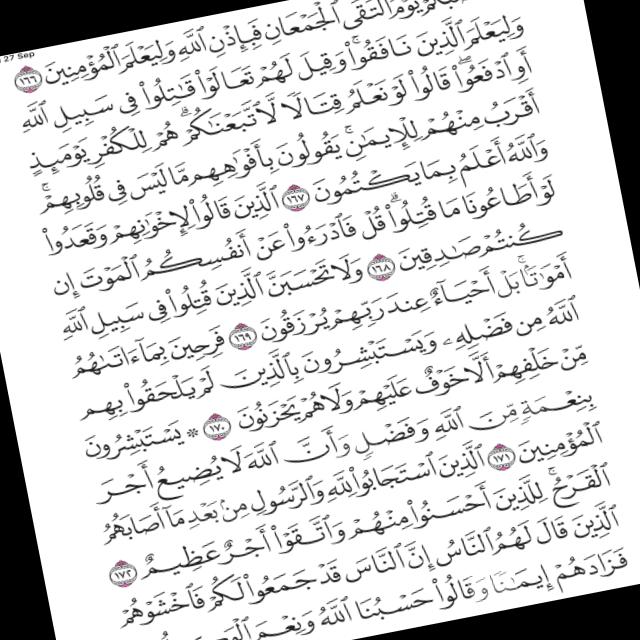 27 Sep
يَوْمَ ٱلْتَقَى ٱلْجَمْعَانِ فَبِإِذْنِ ٱللَّهِ وَلِيَعْلَمَ ٱلْمُؤْمِنِينَ ١٦٦
وَلِيَعْلَمَ ٱلَّذِينَ نَافَقُوا۟ وَقِيلَ لَهُمْ تَعَالَوْا۟ قَٰتِلُوا۟ فِى سَبِيلِ ٱللَّهِ
أَوِ ٱدْفَعُوا۟ قَالُوا۟ لَوْ نَعْلَمُ قِتَالًا لَّٱتَّبَعْنَٰكُمْ هُمْ لِلْكُفْرِ يَوْمَئِذٍ
أَقْرَبُ مِنْهُمْ لِلْإِيمَٰنِ يَقُولُونَ بِأَفْوَٰهِهِم مَّا لَيْسَ فِى قُلُوبِهِمْ
وَٱللَّهُ أَعْلَمُ بِمَا يَكْتُمُونَ ١٦٧ ٱلَّذِينَ قَالُوا۟ لِإِخْوَٰنِهِمْ وَقَعَدُوا۟
لَوْ أَطَاعُونَا مَا قُتِلُوا۟ قُلْ فَٱدْرَءُوا۟ عَنْ أَنفُسِكُمُ ٱلْمَوْتَ إِن
كُنتُمْ صَٰدِقِينَ ١٦٨ وَلَا تَحْسَبَنَّ ٱلَّذِينَ قُتِلُوا۟ فِى سَبِيلِ ٱللَّهِ
أَمْوَٰتًۢا بَلْ أَحْيَآءٌ عِندَ رَبِّهِمْ يُرْزَقُونَ ١٦٩ فَرِحِينَ بِمَآ ءَاتَىٰهُمُ
ٱللَّهُ مِن فَضْلِهِۦ وَيَسْتَبْشِرُونَ بِٱلَّذِينَ لَمْ يَلْحَقُوا۟ بِهِم
مِّنْ خَلْفِهِمْ أَلَّا خَوْفٌ عَلَيْهِمْ وَلَا هُمْ يَحْزَنُونَ ١٧٠ ۞ يَسْتَبْشِرُونَ
بِنِعْمَةٍ مِّنَ ٱللَّهِ وَفَضْلٍ وَأَنَّ ٱللَّهَ لَا يُضِيعُ أَجْرَ
ٱلْمُؤْمِنِينَ ١٧١ ٱلَّذِينَ ٱسْتَجَابُوا۟ لِلَّهِ وَٱلرَّسُولِ مِنۢ بَعْدِ مَآ أَصَابَهُمُ
ٱلْقَرْحُ لِلَّذِينَ أَحْسَنُوا۟ مِنْهُمْ وَٱتَّقَوْا۟ أَجْرٌ عَظِيمٌ ١٧٢
ٱلَّذِينَ قَالَ لَهُمُ ٱلنَّاسُ إِنَّ ٱلنَّاسَ قَدْ جَمَعُوا۟ لَكُمْ فَٱخْشَوْهُمْ
فَزَادَهُمْ إِيمَٰنًا وَقَالُوا۟ حَسْبُنَا ٱللَّهُ وَنِعْمَ